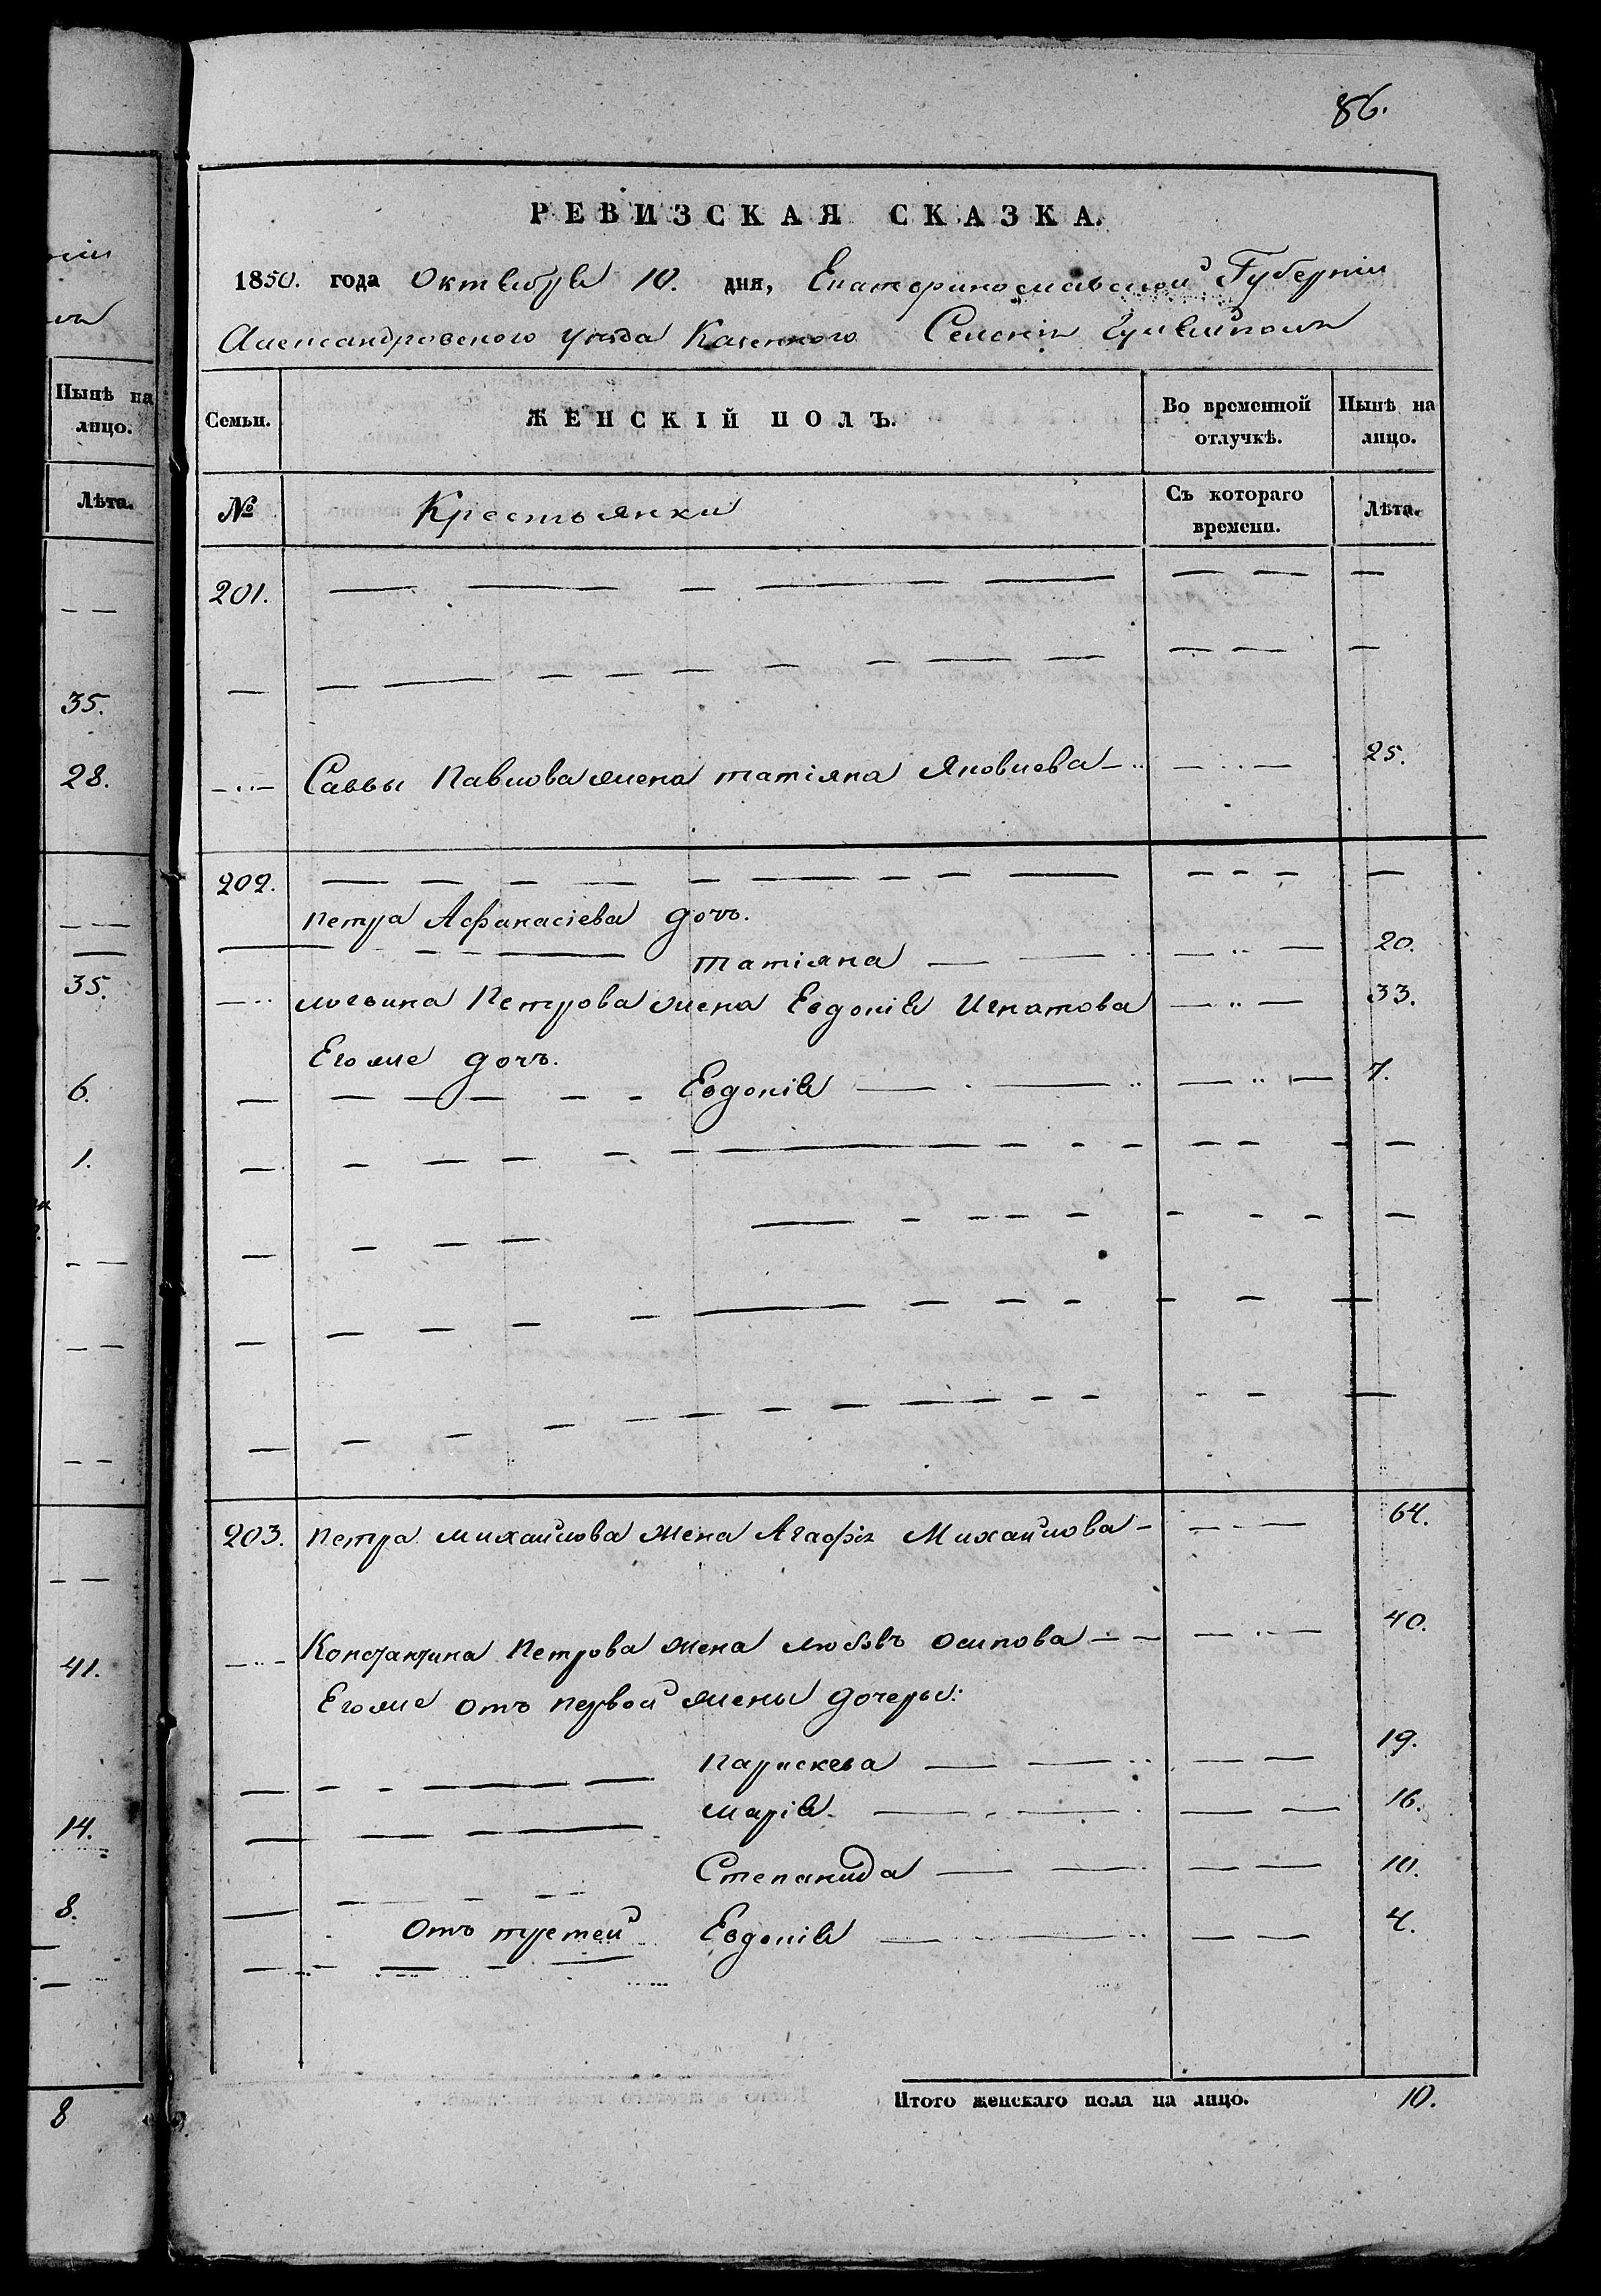 86.
РЕВИЗСКАЯ СКАЗКА.
1850. года Октября 10. дня, Екатеринославской Губерніи
Александровского уезда Казенного Селенія Гуляйполя
Семьи. ЖЕНСКІЙ ПОЛЪ. Во временной отлучкѣ. Нынѣ на лицо.
№ Крестьянки Съ котораго времени. Лѣта.
201.
Саввы Павлова жена татіяна Яковлева 25.
202.
петра Афанасіева дочь.
татіяна 20.
логвина Петрова жена Евдокія Игнатова 33.
Его же дочь.
Евдокія 7.
203. петра михайлова жена Агафія Михайлова 64.
Константина Петрова жена любовь осипова 40.
Его же отъ первой жены дочеры:
параскева 19.
марія 16.
Степанида 10.
отъ третей Евдокія 4.
Итого женскаго пола на лицо. 10.
Нынѣ на
лицо.
Лѣта.
35.
28.
35.
6.
1.
41.
14.
8.
8